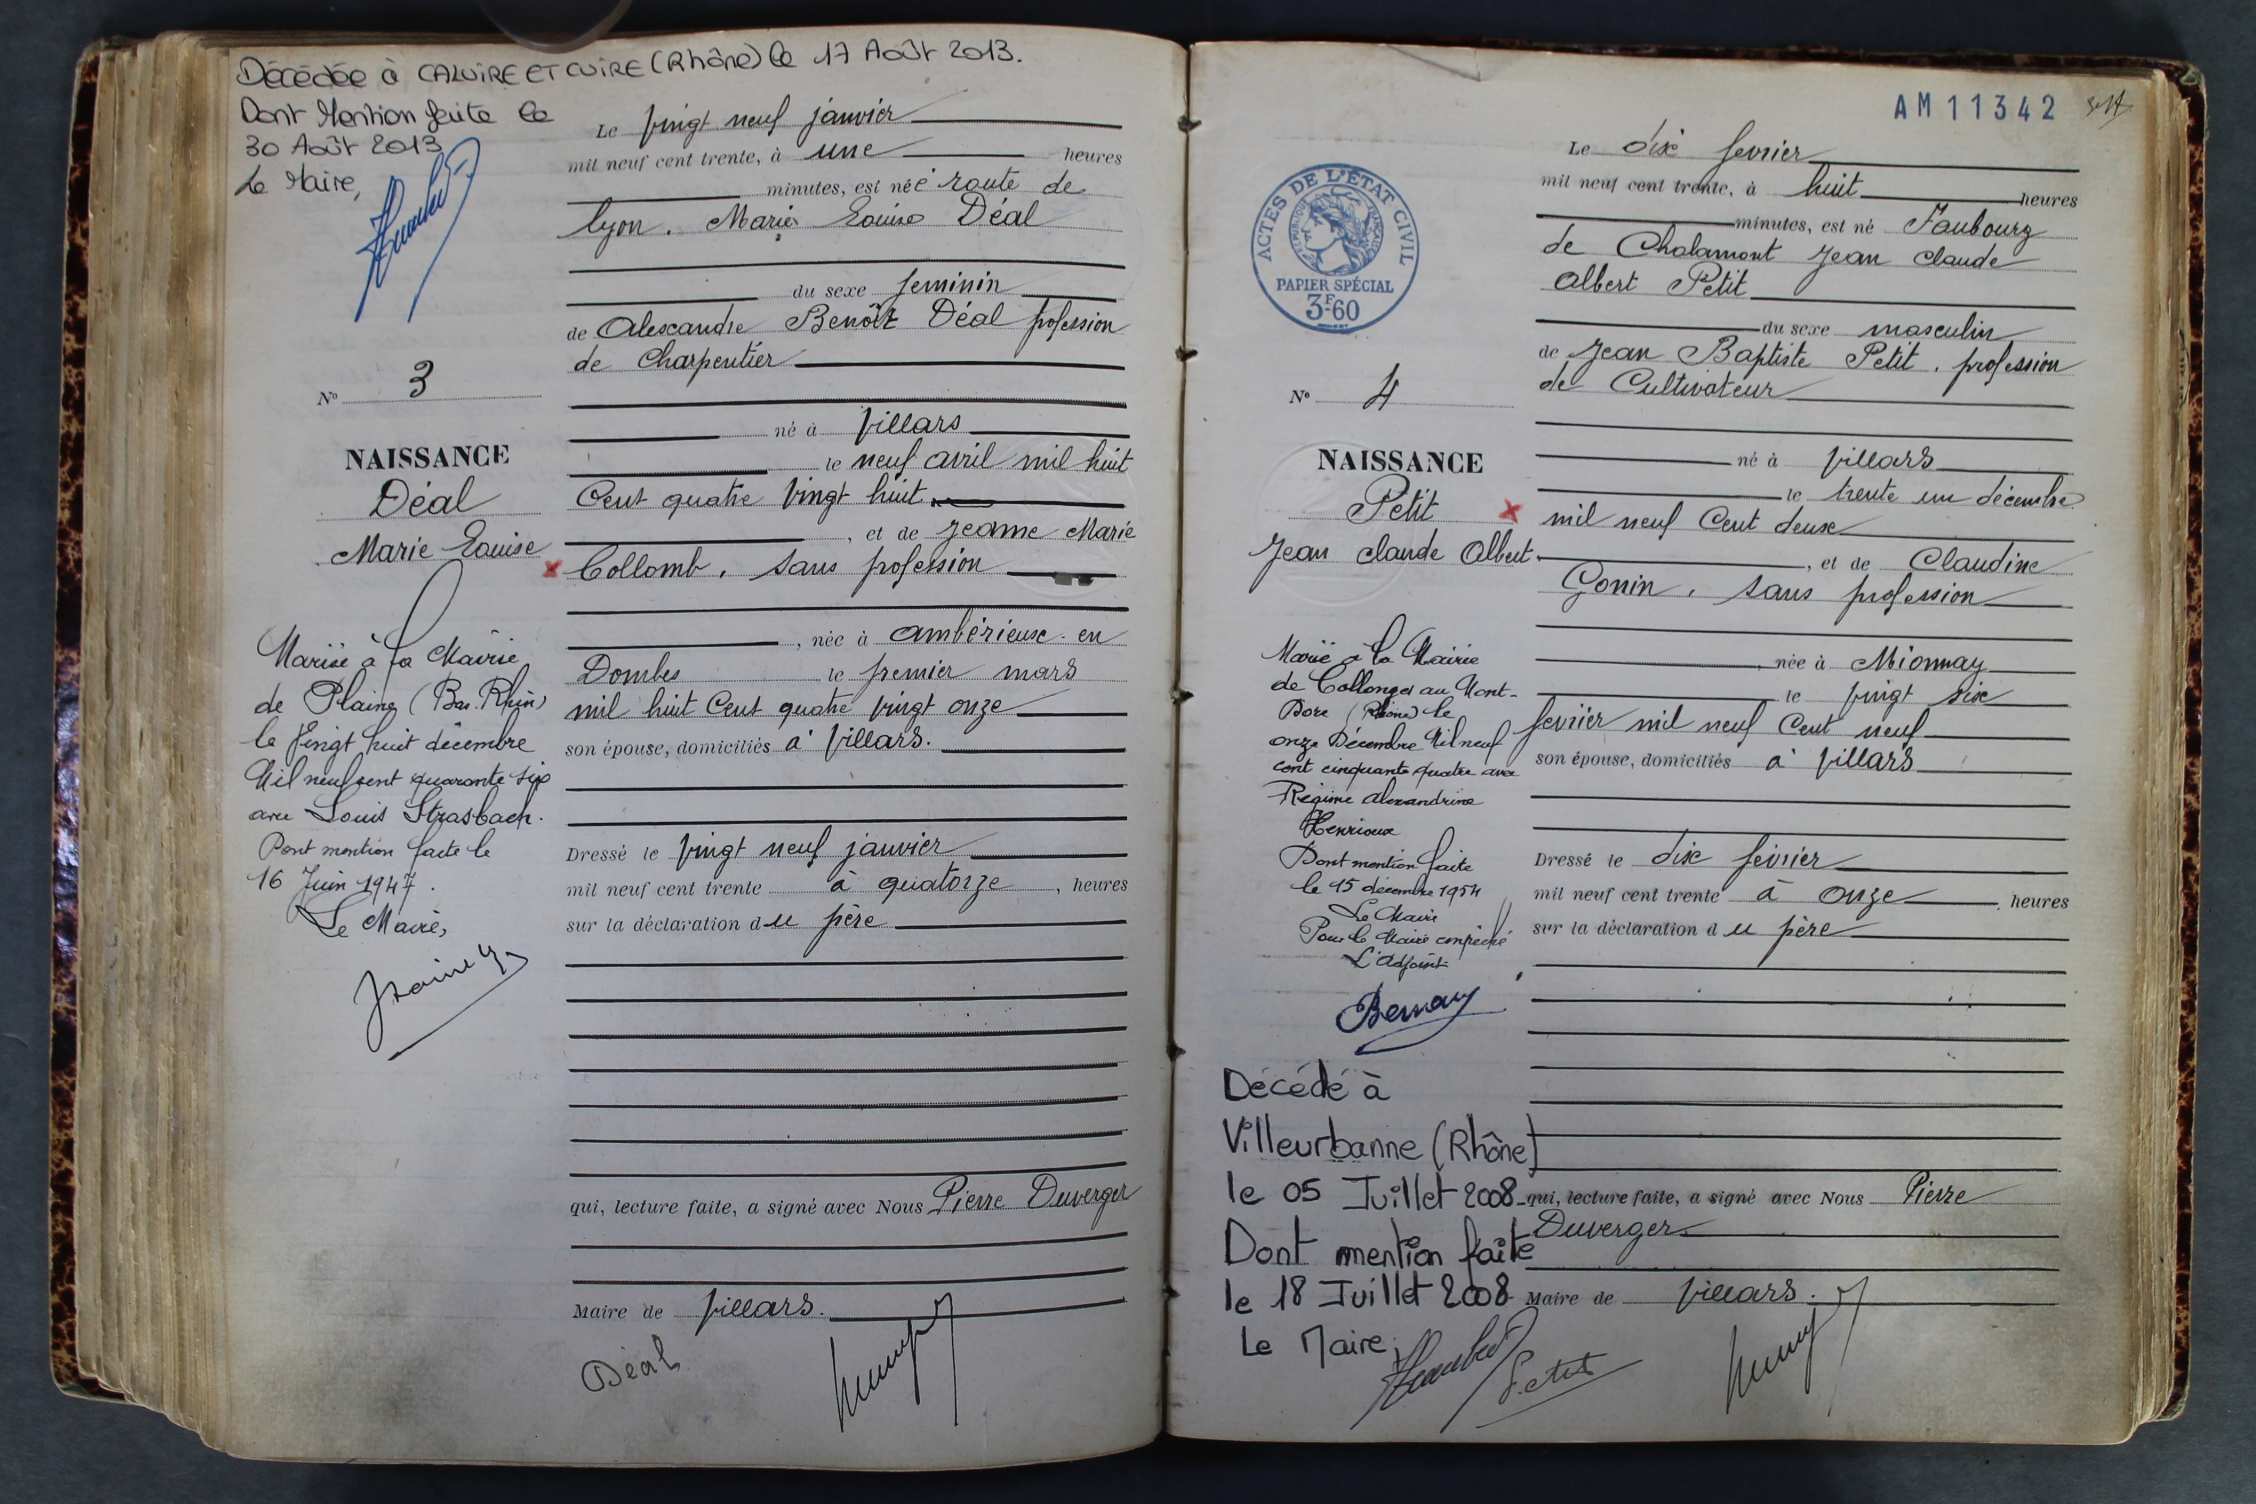 Décédée à CALUIRE ET CUIRE (Rhône) le 17 Août 2013.
Dont Mention faite le
30 Août 2013
Le Maire,
N° 3
NAISSANCE
Déal
Marie Louise
Marié à la Mairie
de Plaine (Bas.Rhin)
le Vingt huit décembre
Mil neuf cent quarante six
avec Louis Strasbach.
Dont mention faite le
16 Juin 1947.
Le Maire,
Le vingt neuf janvier
mil neuf cent trente, à une heures
minutes, est née route de
Lyon. Marie Louise Déal
du sexe feminin
de Alexandre Benoît Déal profession
de Charpentier
né à Villars
le neuf avril mil huit
Cent quatre Vingt huit
, et de Jeanne Marie
Collomb, sans profession
, née à ambérieux-en
Dombes le premier mars
mil huit Cent quatre vingt onze
son épouse, domiciliés à Villars.
Dressé le vingt neuf janvier
mil neuf cent trente à quatorze, heures
sur la déclaration du père
qui, lecture faite, a signé avec Nous Pierre Duverger
Maire de Villars.
Déal
AM11342
ACTES DE L'ÉTAT CIVIL
RÉPUBLIQUE FRANÇAISE
PAPIER SPÉCIAL
3F60
N° 4
NAISSANCE
Petit
Jean Claude Albert
Marié à la Mairie
de Collonges au Mont-
Dore (Rhône) le
onze Décembre Mil neuf
cent cinquante quatre avec
Régine Alexandrine
Henrioux
Dont mention faite
le 15 décembre 1954
Le Maire
Pour le Maire empêché
L'adjoint
Décédé à
Villeurbanne (Rhône)
le 05 Juillet 2008
Dont mention faite
le 18 Juillet 2008
Le Maire,
Le dix fevrier
mil neuf cent trente, à huit heures
minutes, est né Faubourg
de Chalamont Jean Claude
Albert Petit
du sexe masculin
de Jean Baptiste Petit, profession
de Cultivateur
né à Villars
le trente un décembre
mil neuf Cent deux
, et de Claudine
Gonin, sans profession
, née à Mionnay
le vingt six
fevrier mil neuf Cent neuf
son épouse, domiciliés à Villars
Dressé le dix fevrier
mil neuf cent trente à onze, heures
sur la déclaration du père
qui, lecture faite, a signé avec Nous Pierre
Duverger
Maire de Villars.
Petit